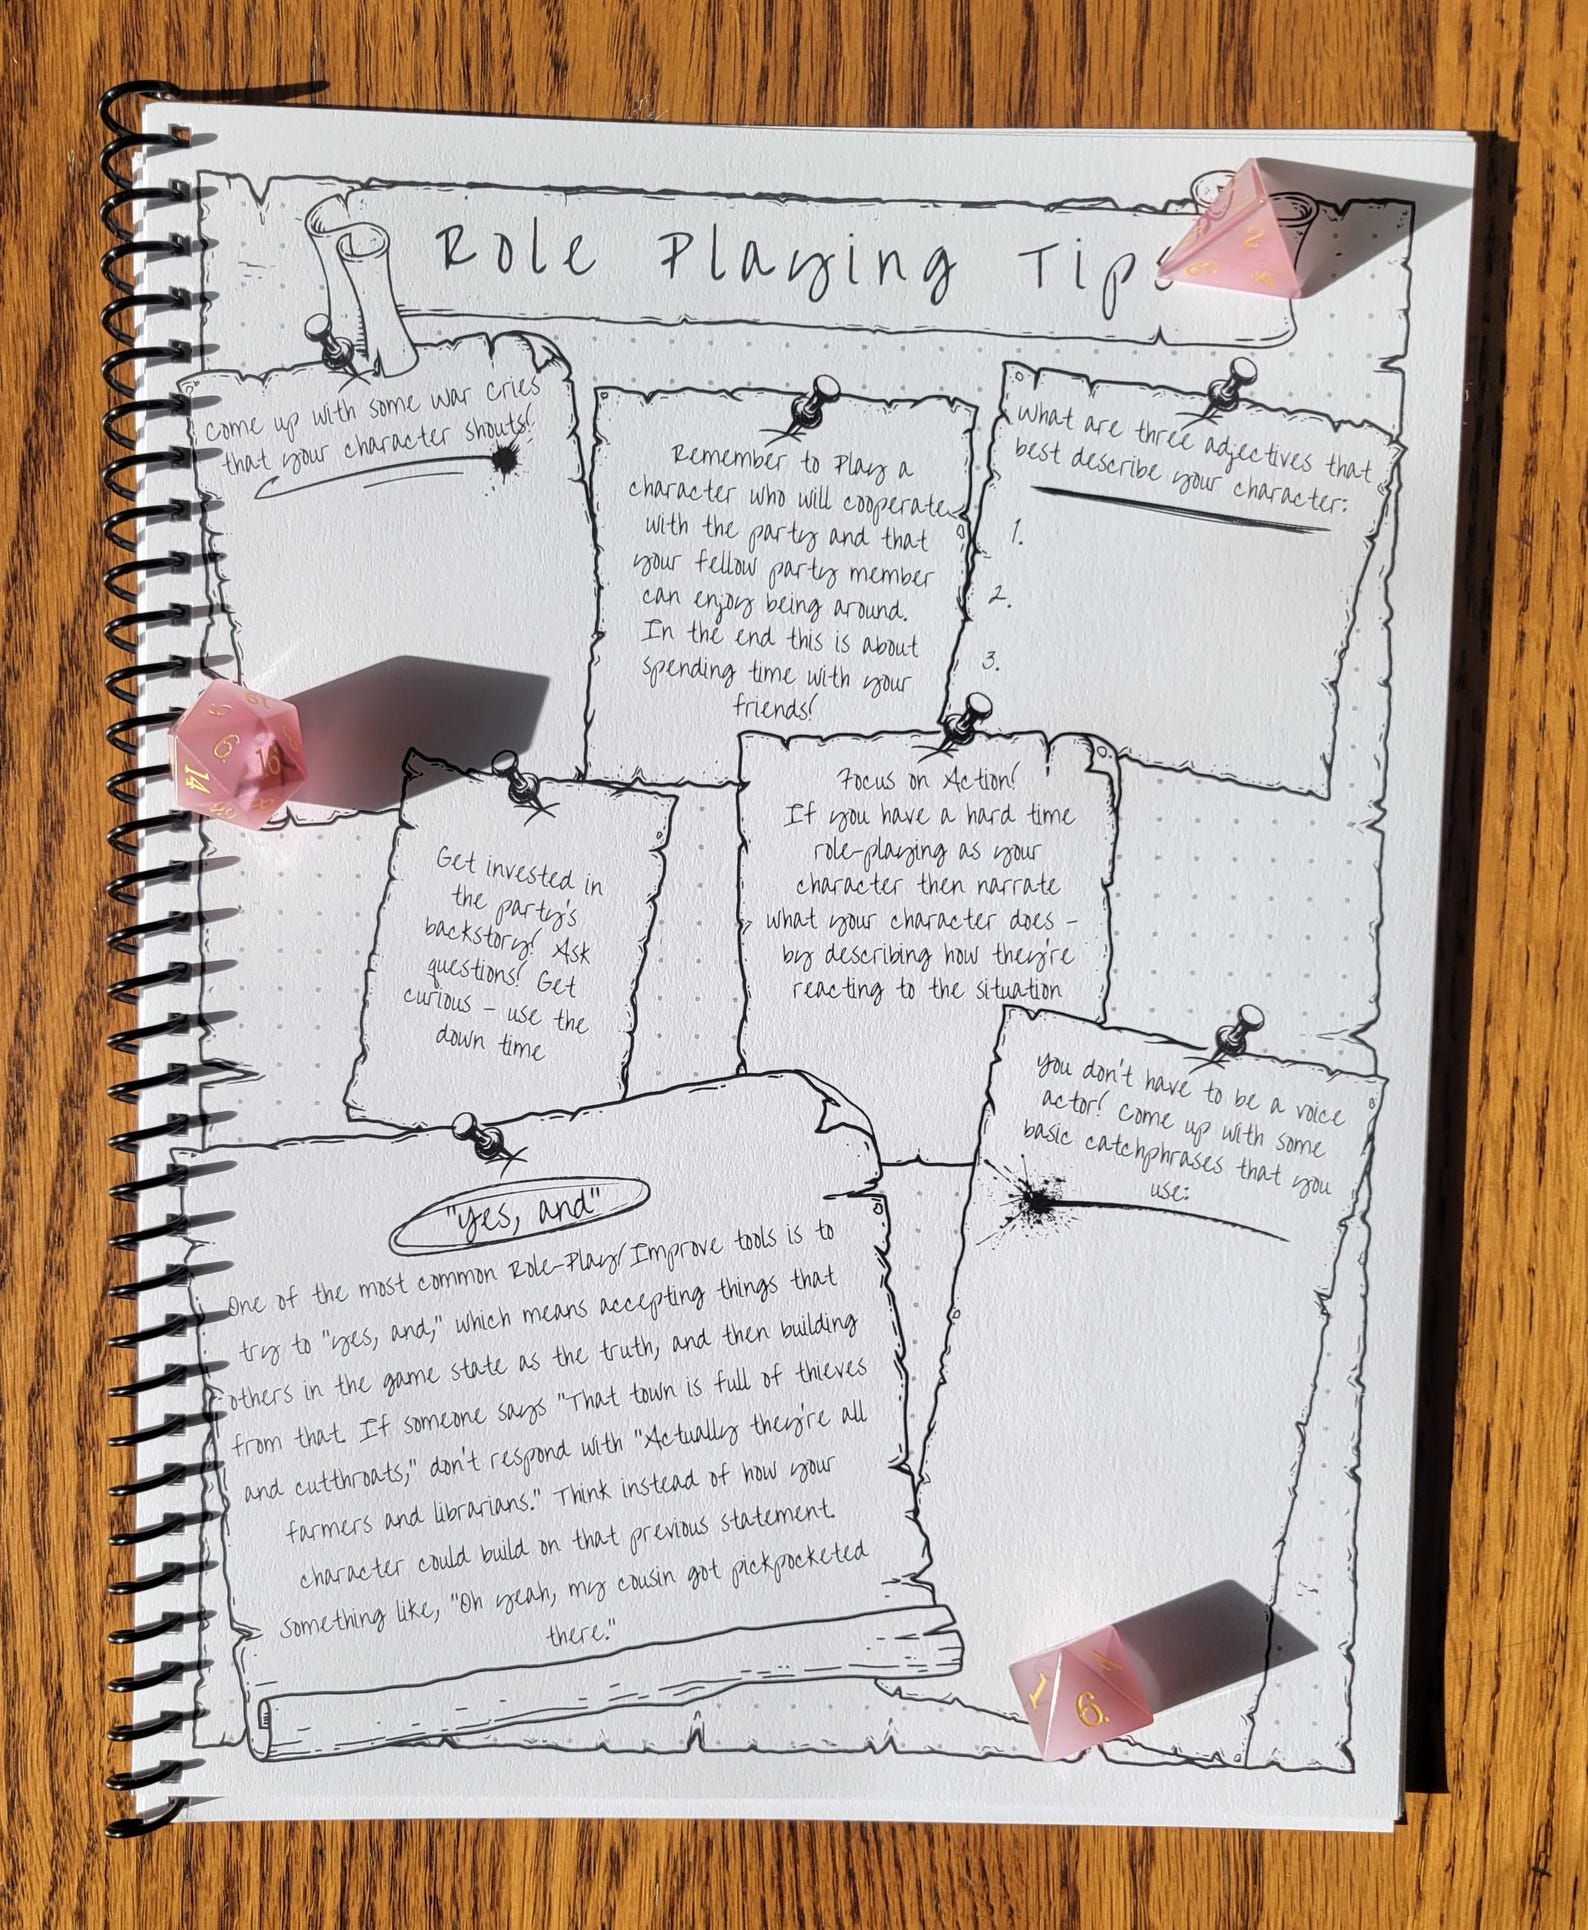 Role Playing Tip
Come up with some war cries
that your character shouts!
Remember to Play a
character who will cooperate
with the party and that
your fellow party member
can enjoy being around.
In the end this is about
spending time with your
friends!
What are three adjectives that
best describe your character:
1.
2.
3.
Get invested in
the party's
backstory! Ask
questions! Get
curious - use the
down time
Focus on Action!
If you have a hard time
role-playing as your
character then narrate
what your character does -
by describing how they're
reacting to the situation
"yes, and"
One of the most common Role-Play/Improve tools is to
try to "yes, and," which means accepting things that
others in the game state as the truth, and then building
from that. If someone says "That town is full of thieves
and cutthroats," don't respond with "Actually they're all
farmers and librarians." Think instead of how your
character could build on that previous statement.
Something like, "Oh yeah, my cousin got pickpocketed
there."
You don't have to be a voice
actor! Come up with some
basic catchphrases that you
use:
2
6
16
14
1
6